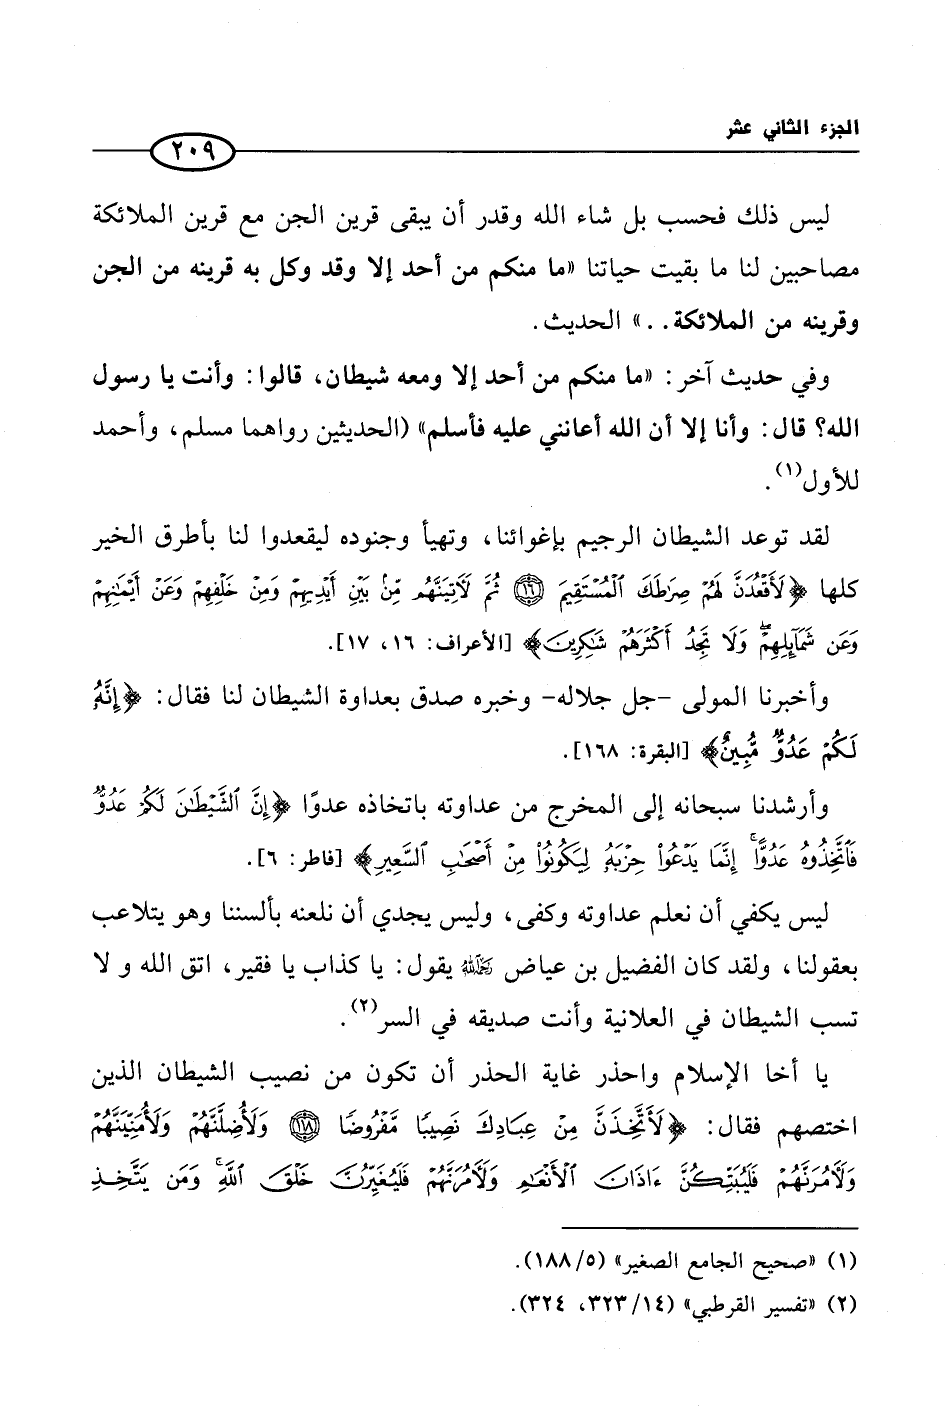 الجزء الثاني عشر
٢٠٩
ليس ذلك فحسب بل شاء الله وقدر أن يبقى قرين الجن مع قرين الملائكة
مصاحبين لنا ما بقيت حياتنا «ما منكم من أحد إلا وقد وكل به قرينه من الجن
وقرينه من الملائكة. .» الحديث.
وفي حديث آخر: «ما منكم من أحد إلا ومعه شيطان، قالوا: وأنت يا رسول
الله؟ قال: وأنا إلا أن الله أعانني عليه فأسلم» (الحديثين رواهما مسلم، وأحمد
للأول(١).
لقد توعد الشيطان الرجيم بإغوائنا، وتهيأ وجنوده ليقعدوا لنا بأطرق الخير
كلها ﴿لَأَقْعُدَنَّ لَهُمْ صِرَٰطَكَ ٱلْمُسْتَقِيمَ ۝١٦ ثُمَّ لَـَٔاتِيَنَّهُم مِّنۢ بَيْنِ أَيْدِيهِمْ وَمِنْ خَلْفِهِمْ وَعَنْ أَيْمَٰنِهِمْ
وَعَن شَمَآئِلِهِمْ ۖ وَلَا تَجِدُ أَكْثَرَهُمْ شَٰكِرِينَ﴾ [الأعراف: ١٦، ١٧].
وأخبرنا المولى -جل جلاله- وخبره صدق بعداوة الشيطان لنا فقال: ﴿إِنَّهُۥ
لَكُمْ عَدُوٌّ مُّبِينٌ﴾ [البقرة: ١٦٨].
وأرشدنا سبحانه إلى المخرج من عداوته باتخاذه عدوًا ﴿إِنَّ ٱلشَّيْطَٰنَ لَكُمْ عَدُوٌّ
فَٱتَّخِذُوهُ عَدُوًّا ۚ إِنَّمَا يَدْعُوا۟ حِزْبَهُۥ لِيَكُونُوا۟ مِنْ أَصْحَٰبِ ٱلسَّعِيرِ﴾ [فاطر: ٦].
ليس يكفي أن نعلم عداوته وكفى، وليس يجدي أن نلعنه بألسننا وهو يتلاعب
بعقولنا، ولقد كان الفضيل بن عياض رحمه الله يقول: يا كذاب يا فقير، اتق الله و لا
تسب الشيطان في العلانية وأنت صديقه في السر(٢).
يا أخا الإسلام واحذر غاية الحذر أن تكون من نصيب الشيطان الذين
اختصهم فقال: ﴿لَأَتَّخِذَنَّ مِنْ عِبَادِكَ نَصِيبًا مَّفْرُوضًا ۝١١٨ وَلَأُضِلَّنَّهُمْ وَلَأُمَنِّيَنَّهُمْ
وَلَـَٔامُرَنَّهُمْ فَلَيُبَتِّكُنَّ ءَاذَانَ ٱلْأَنْعَٰمِ وَلَـَٔامُرَنَّهُمْ فَلَيُغَيِّرُنَّ خَلْقَ ٱللَّهِ ۚ وَمَن يَتَّخِذِ
(١) «صحيح الجامع الصغير» (٥/ ١٨٨).
(٢) «تفسير القرطبي» (١٤/ ٣٢٣، ٣٢٤).